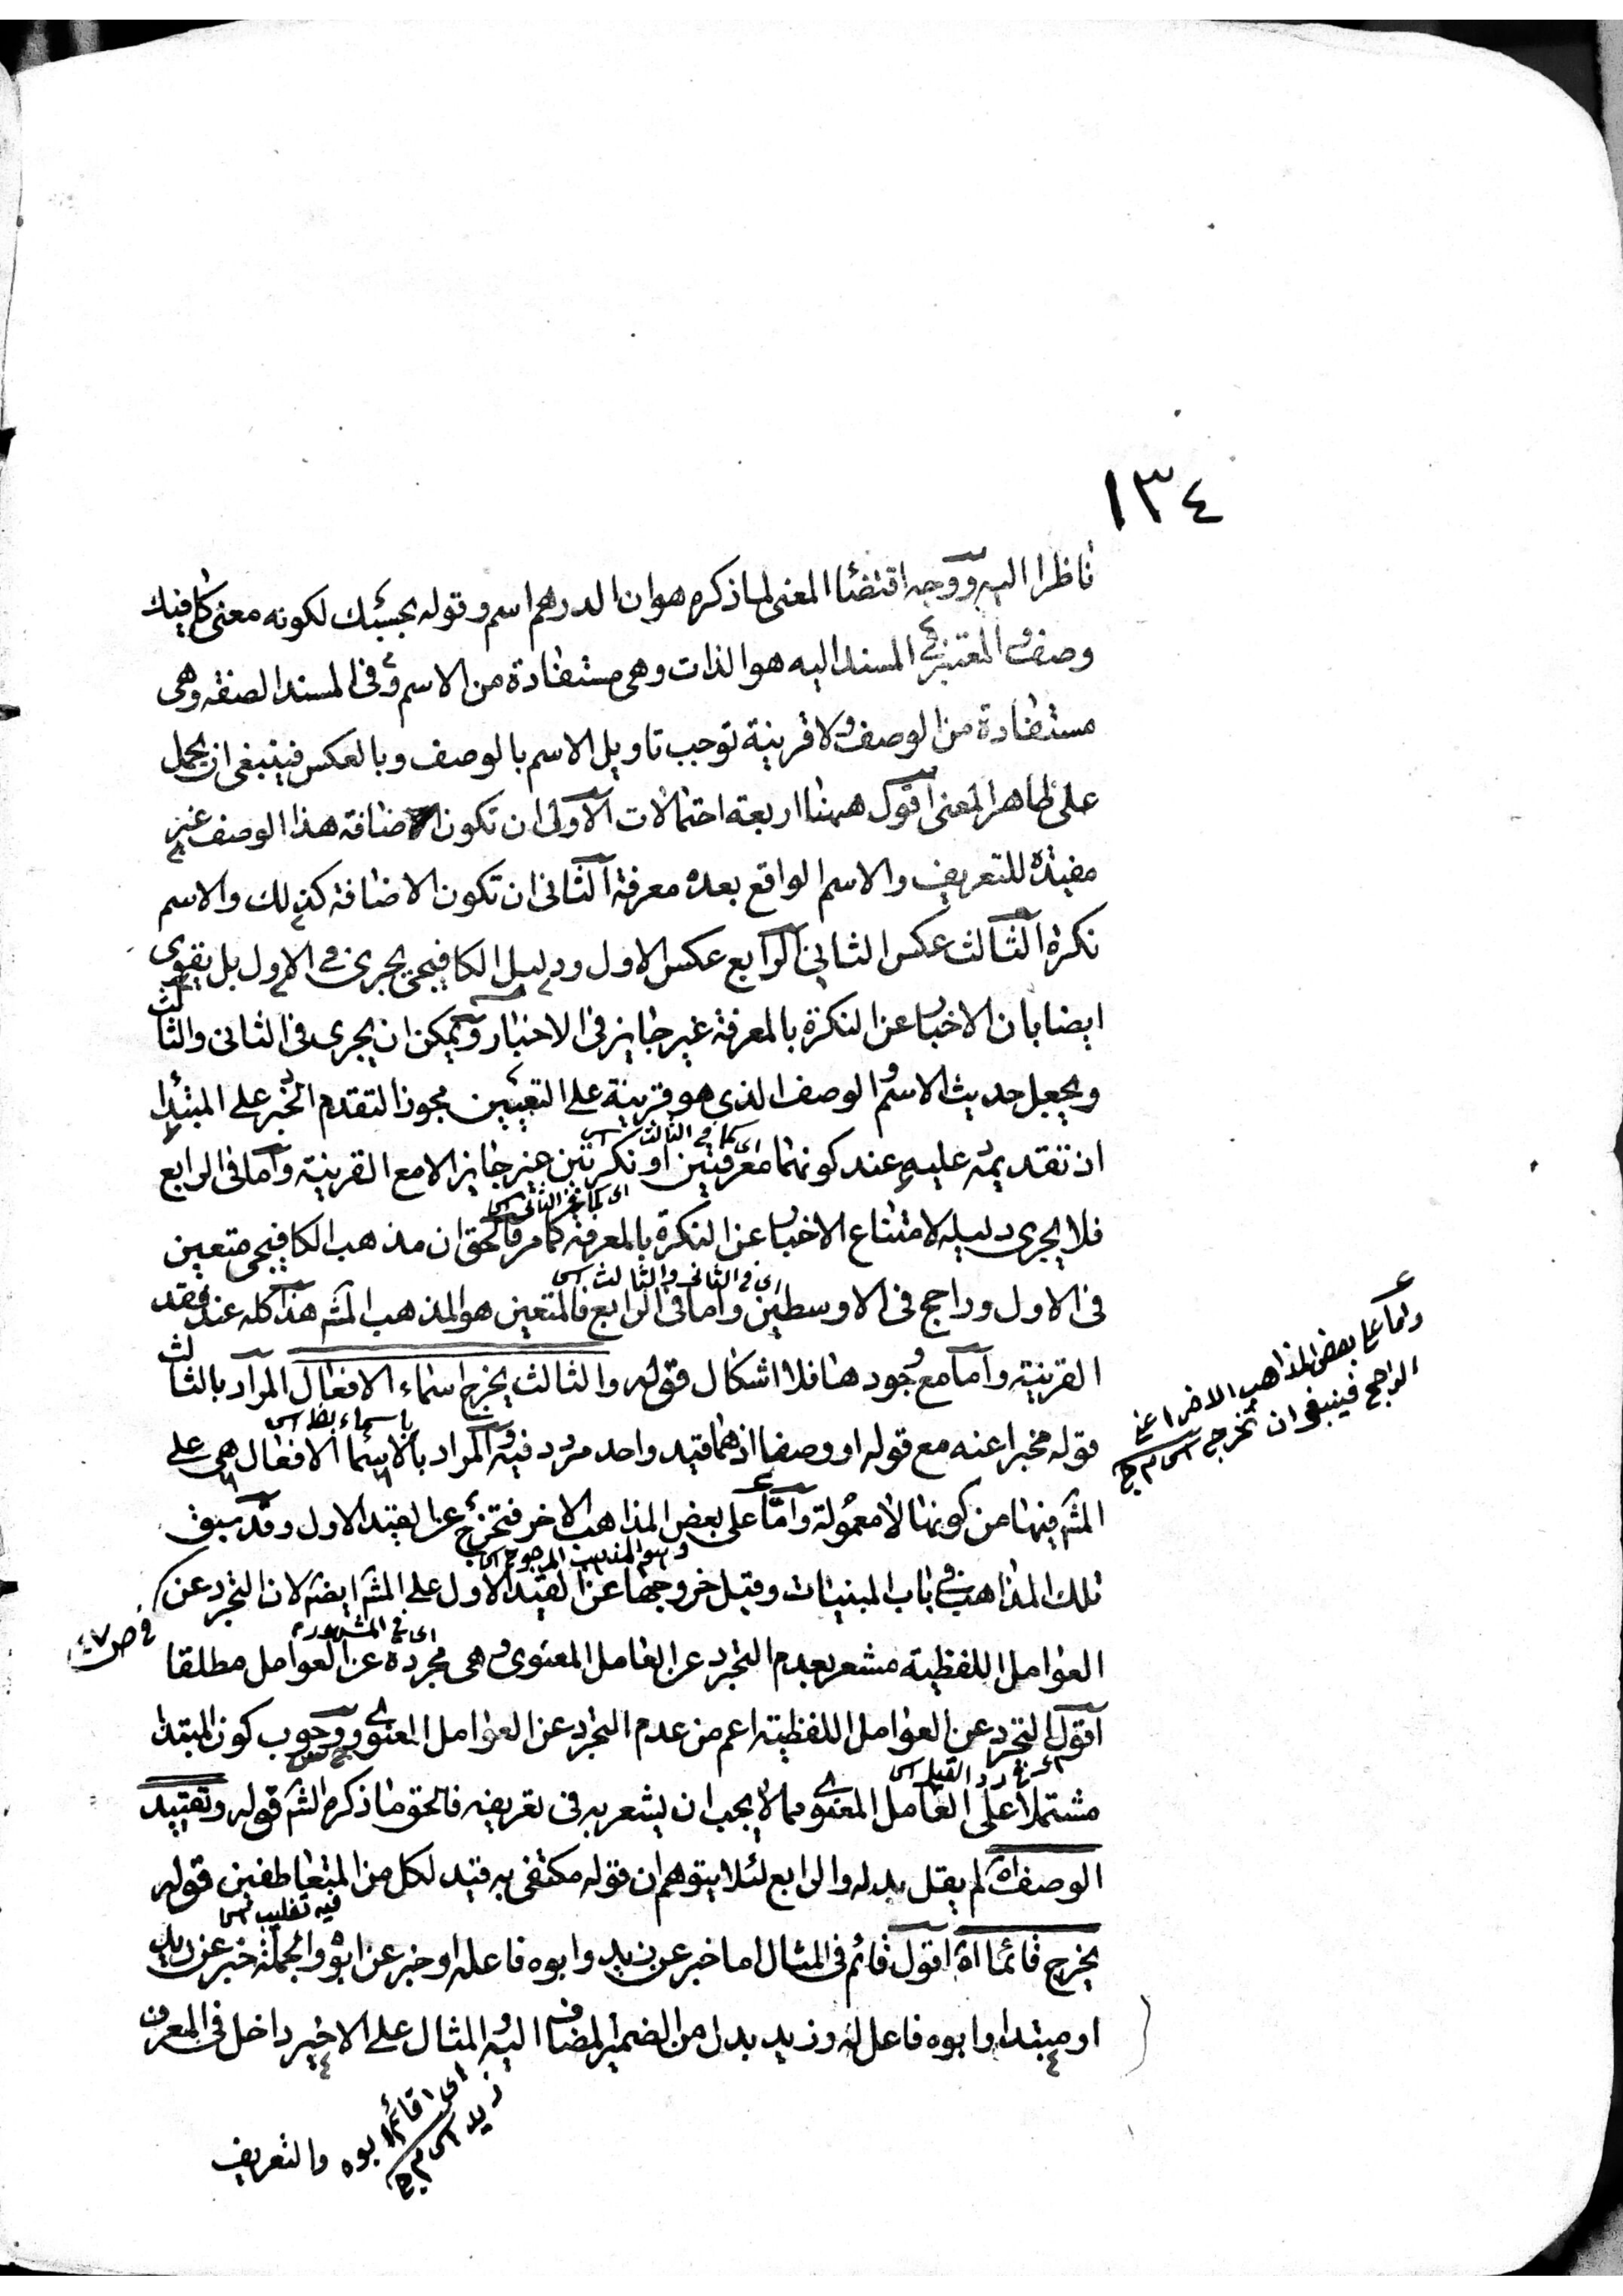 ١٣٤
ناظرا اليه ووجه اقتضاء المعنى لما ذكره هو ان الدرهم اسم وقوله بحسبك لكونه معنى كافيك
وصف والمعتبر في المسند اليه هو الذات وهي مستفادة من الاسم وفي المسند الصفة وهي
مستفادة من الوصف ولا قرينة توجب تاويل الاسم بالوصف وبالعكس فينبغي ان يحمل
على ظاهر المعنى اقول ههنا اربعة احتمالات الاولى ان تكون الاضافة هذا الوصف غير
مفيدة للتعريف والاسم الواقع بعده معرفة الثاني ان تكون الاضافة كذلك والاسم
نكرة الثالث عكس الثاني الرابع عكس الاول ودليل الكافيجي يجرى في الاول بل يقوى
ايضا بان الاخبار عن النكرة بالمعرفة غير جايز في الاخبار ويمكن ان يجرى في الثاني والثالث
ويجعل حديث الاسم والوصف الذي هو قرينة على التعيين مجوزا لتقدم الخبر على المبتدا
اى كما في الثالث
اذ تقديمه عليه عند كونهما معرفتين او نكرتين غير جايز الا مع القرينة واما في الرابع
اى كما في الثاني
فلا يجرى دليله لامتناع الاخبار عن النكرة بالمعرفة كما مر فالحق ان مذهب الكافيجي متعين
اى في الثاني والثالث
في الاول وراجح في الاوسطين واما في الرابع فالمتعين هو المذهب المشه هذا كله عند فقد
القرينة واما مع وجودها فلا اشكال قوله والثالث يخرج اسماء الافعال المراد بالثالث
باسماء
قوله مخبرا عنه مع قوله او وصفا اذ هما قيد واحد مردد فيه والمراد بالاسما الافعال هي على
المشه فيها من كونها لا معمولة واما على بعض المذاهب الاخر فتخرج عن القيد الاول وقد سبق
وهو المذهب المرجوح
تلك المذاهب في باب المبنيات وقيل خروجها عن القيد الاول على المشه ايضه لان التجرد عن
اى في المشهورة
العوامل اللفظية مشعر بعدم التجرد عن العامل المعنوى وهي مجردة عن العوامل مطلقا
في ص ٤٧
اقول التجرد عن العوامل اللفظية اعم من عدم التجرد عن العوامل المعنوى ووجوب كون المبتدا
رد القيل
مشتملا على العامل المعنوى مما لا يجب ان يشعر به في تعريفه فالحق ما ذكره الشه قوله وتقييد
الوصف اه لم يقل بدله والرابع لئلا يتوهم ان قوله مكتفى به قيد لكل من المتعاطفين قوله
فيه تغليب
يخرج قائما اه اقول قائم في المثال اما خبر عن زيد وابوه فاعله او خبر عن ابوه والجملة خبر عن زيد
او مبتدا وابوه فاعل له وزيد بدل من الضمير المضاف اليه والمثال على الاخير داخل في المعرف
اى اقائم ابوه
زيد
والتعريف
واما على بعض المذاهب الاخر اعنى
الراجح فينبغي ان تخرج